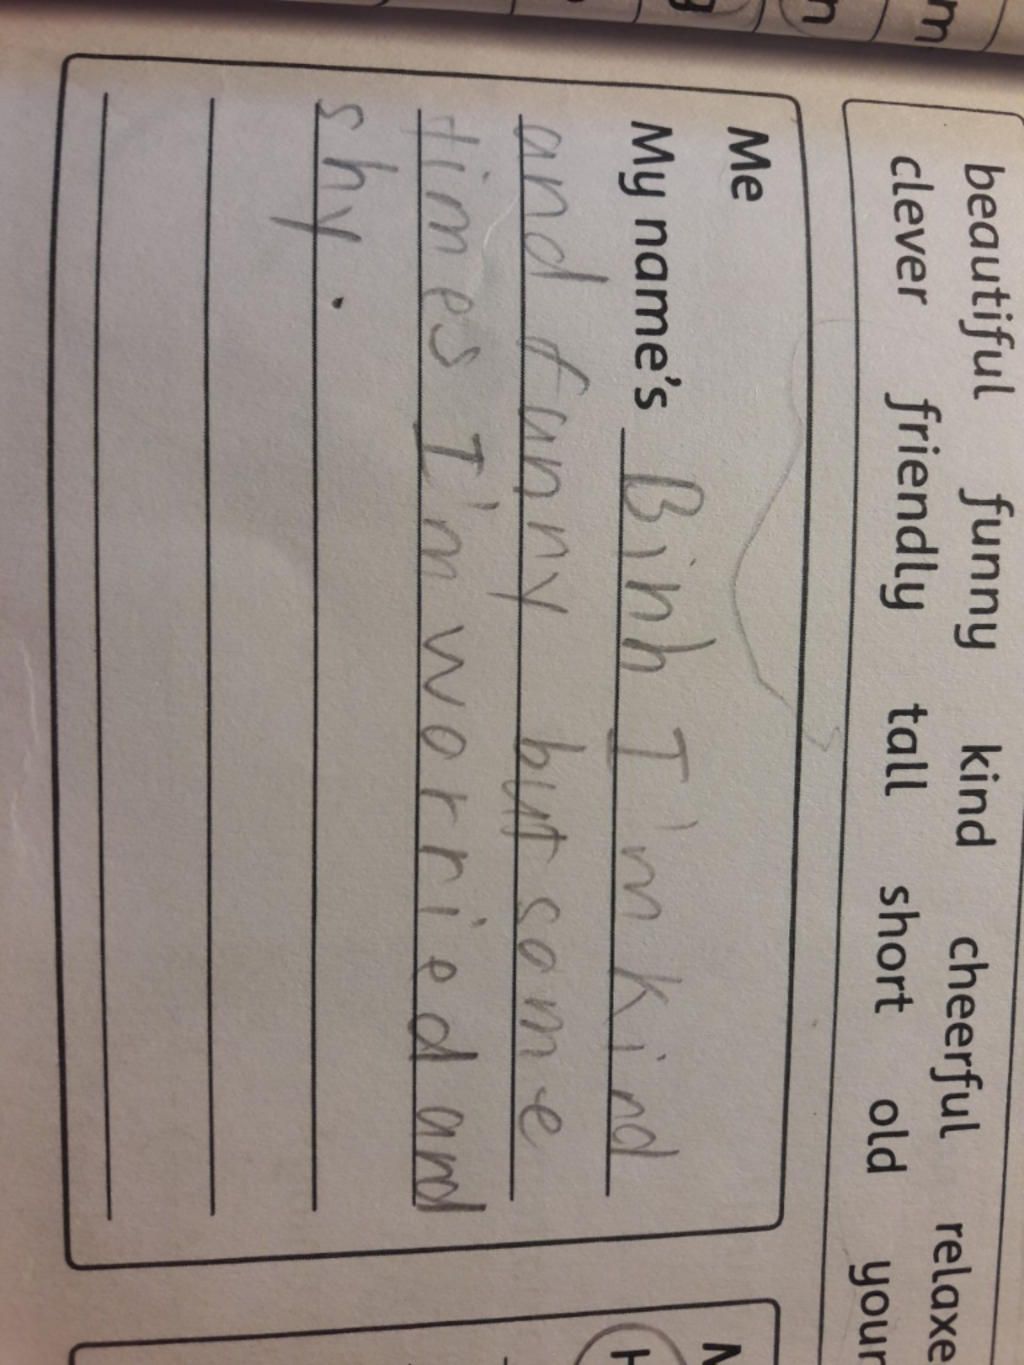 beautiful funny kind cheerful relaxe
clever friendly tall short old your
Me
My name's Binh I'm kind
and funny but some
times I'm worried and
shy.